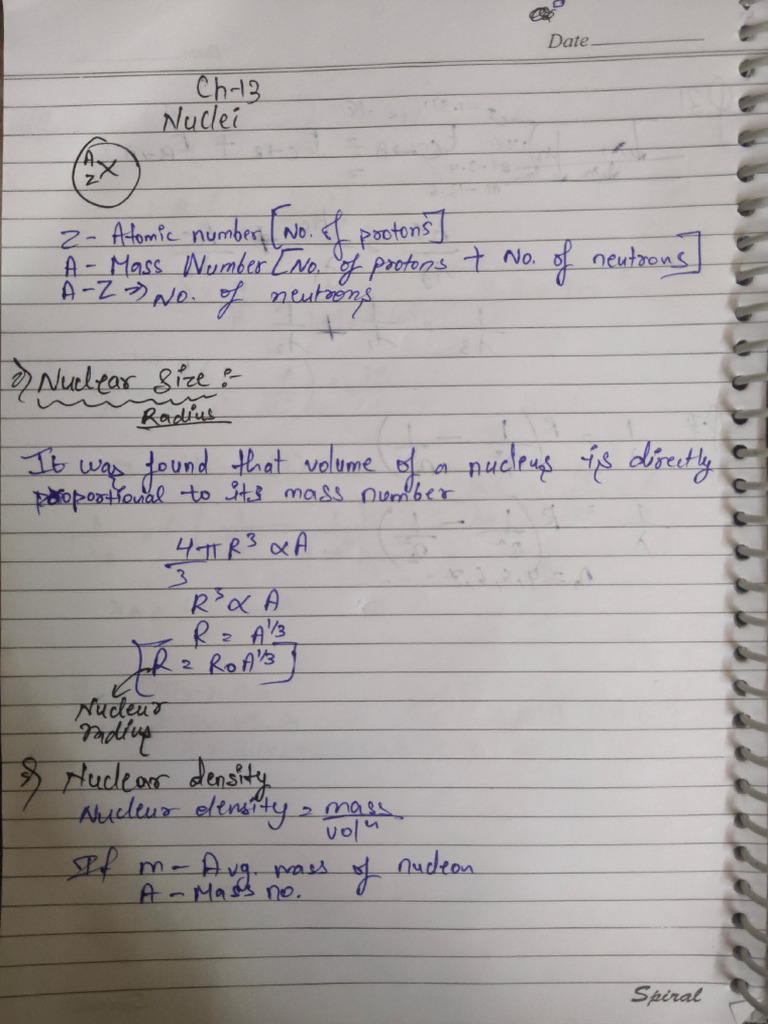 Date
Ch-13
Nuclei
A
Z X
Z - Atomic number [No. of protons]
A - Mass Number [No. of protons + No. of neutrons]
A-Z ⇒ No. of neutrons
Nuclear Size :-
Radius
It was found that volume of a nucleus is directly
proportional to its mass number
4/3 πR³ ∝ A
R³ ∝ A
R = A^1/3
[R = R₀A^1/3]
Nucleur
radius
Nuclear density
Nucleur density = mass/volⁿ
If m - Avg. mass of nucleon
A - Mass no.
Spiral